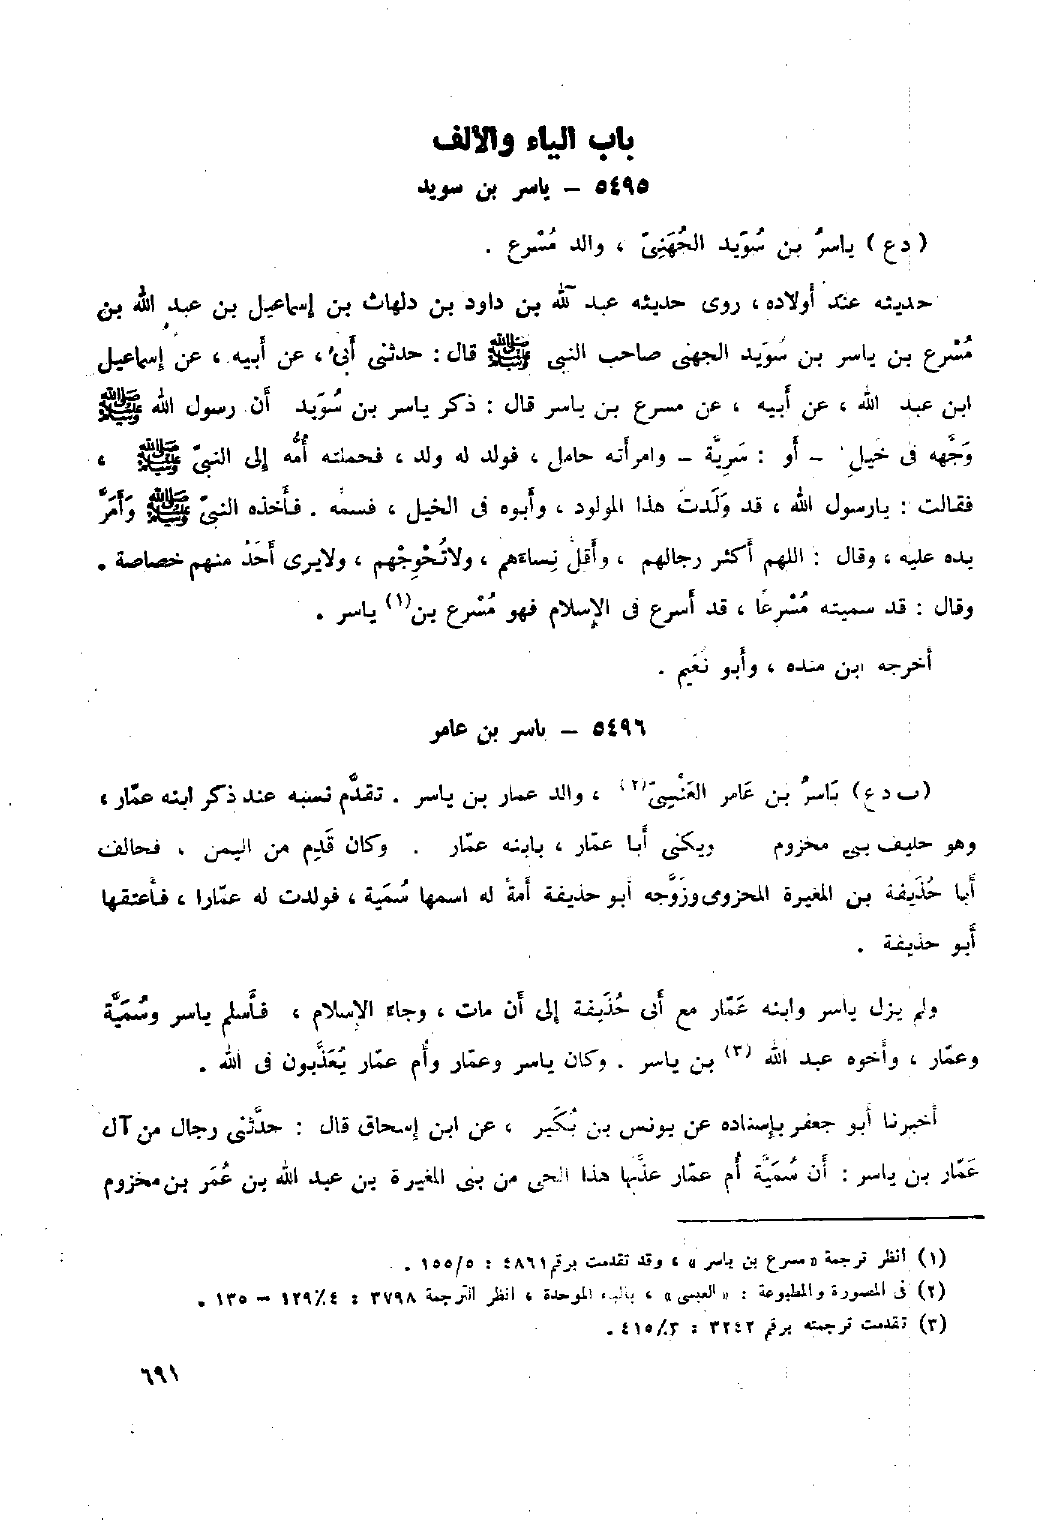 باب الياء والألف
٥٤٩٥ – ياسر بن سويد
(دع) ياسرُ بن سُوَيد الجُهَنِىّ ، والد مُسْرع .
حديثه عند أولاده، روى حديثه عبد الله بن داود بن دلهاث بن إسماعيل بن عبد الله بن
مُسْرع بن ياسر بن سُوَيد الجهنى صاحب النبى ﷺ قال : حدثنى أبى ، عن أبيه ، عن إسماعيل
ابن عبد الله ، عن أبيه ، عن مسرع بن ياسر قال : ذكر ياسر بن سُوَيد أن رسول الله ﷺ
وَجَّهه فى خيل – أو : سَرِيَّة – وامرأته حامل ، فولد له ولد ، فحملته أُمُّه إلى النبىّ ﷺ ،
فقالت : يارسول الله ، قد وَلَدتُ هذا المولود ، وأبوه فى الخيل ، فسمه . فأخذه النبىّ ﷺ وَأَمَرَّ
يده عليه ، وقال : اللهم أكثر رجالهم ، وأقل نِساءَهم ، ولاتُحْوِجْهم ، ولايرى أَحَدٌ منهم خصاصة .
وقال : قد سميته مُسْرعًا ، قد أسرع فى الإسلام فهو مُسْرع بن(١) ياسر .
أخرجه ابن منده ، وأبو نُعَيم .
٥٤٩٦ – ياسر بن عامر
(ب دع) يَاسرُ بن عَامر العَنْسِىّ(٢) ، والد عمار بن ياسر . تقدَّم نسبه عند ذكر ابنه عمّار ،
وهو حليف بنى مخزوم ويكنى أبا عمّار ، بابنه عمّار . وكان قَدِم من اليمن . فحالف
أبا حُذَيفة بن المغيرة المخزومى وزَوَّجه أبو حذيفة أمةً له اسمها سُمَية ، فولدت له عمّارا ، فأعتقها
أبو حذيفة .
ولم يزل ياسر وابنه عَمّار مع أبى حُذَيفة إلى أن مات ، وجاءَ الإسلام ، فأسلم ياسر وسُمَيَّة
وعمّار ، وأخوه عبد الله (٣) بن ياسر . وكان ياسر وعمّار وأُم عمّار يُعَذَّبون فى الله .
أخبرنا أبو جعفر بإسناده عن يونس بن بُكَير ، عن ابن إسحاق قال : حدَّثنى رجال من آل
عَمّار بن ياسر : أن سُمَيَّة أُم عمّار عذَّبها هذا الحى من بنى المغيرة بن عبد الله بن عُمَر بن مخزوم
(١) انظر ترجمة «مسرع بن ياسر» ، وقد تقدمت برقم ٤٨٦١ : ١٥٥/٥ .
(٢) فى المصورة والمطبوعة : «العبسى» ، بالباء الموحدة ، انظر الترجمة ٣٧٩٨ : ١٢٩/٤ – ١٣٥ .
(٣) تقدمت ترجمته برقم ٣٢٤٢ : ٤١٥/٣ .
٦٩١